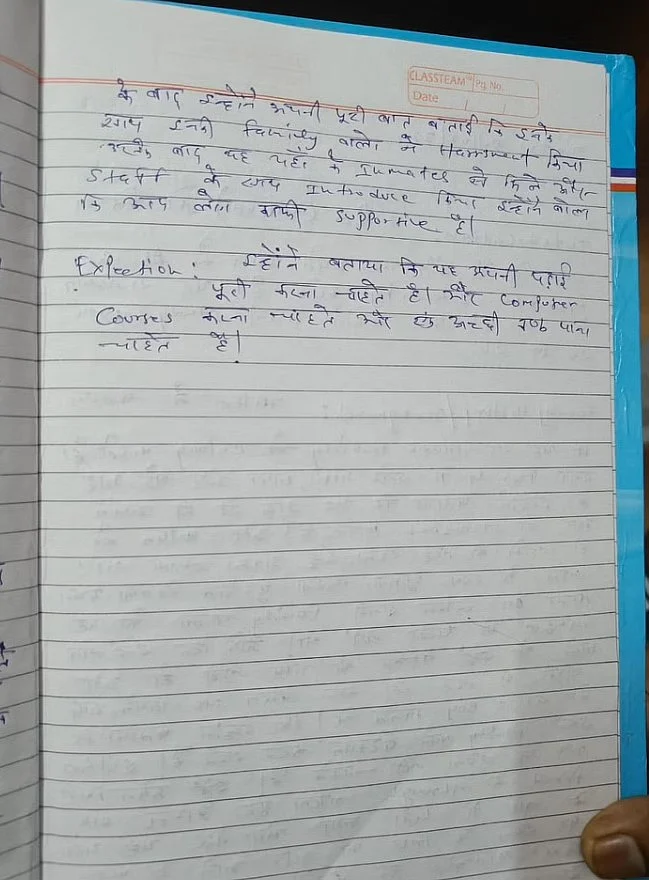 CLASSTEAM™ Pg. No.
Date / /
के बाद इन्होंने अपनी पूरी बात बताई कि इनके
साथ इनकी Family वालो ने Harrsment किया
उसके बाद यह यहाँ के Inmates से मिले और
Staff के साथ Introduce किया इन्होंने बोला
कि आप लोग काफी supportive है।
Expection : इन्होंने बताया कि यह अपनी पढ़ाई
पूरी करना चाहते है। और Computer
Courses करना चाहते और एक अच्छी Job पाना
चाहते है।